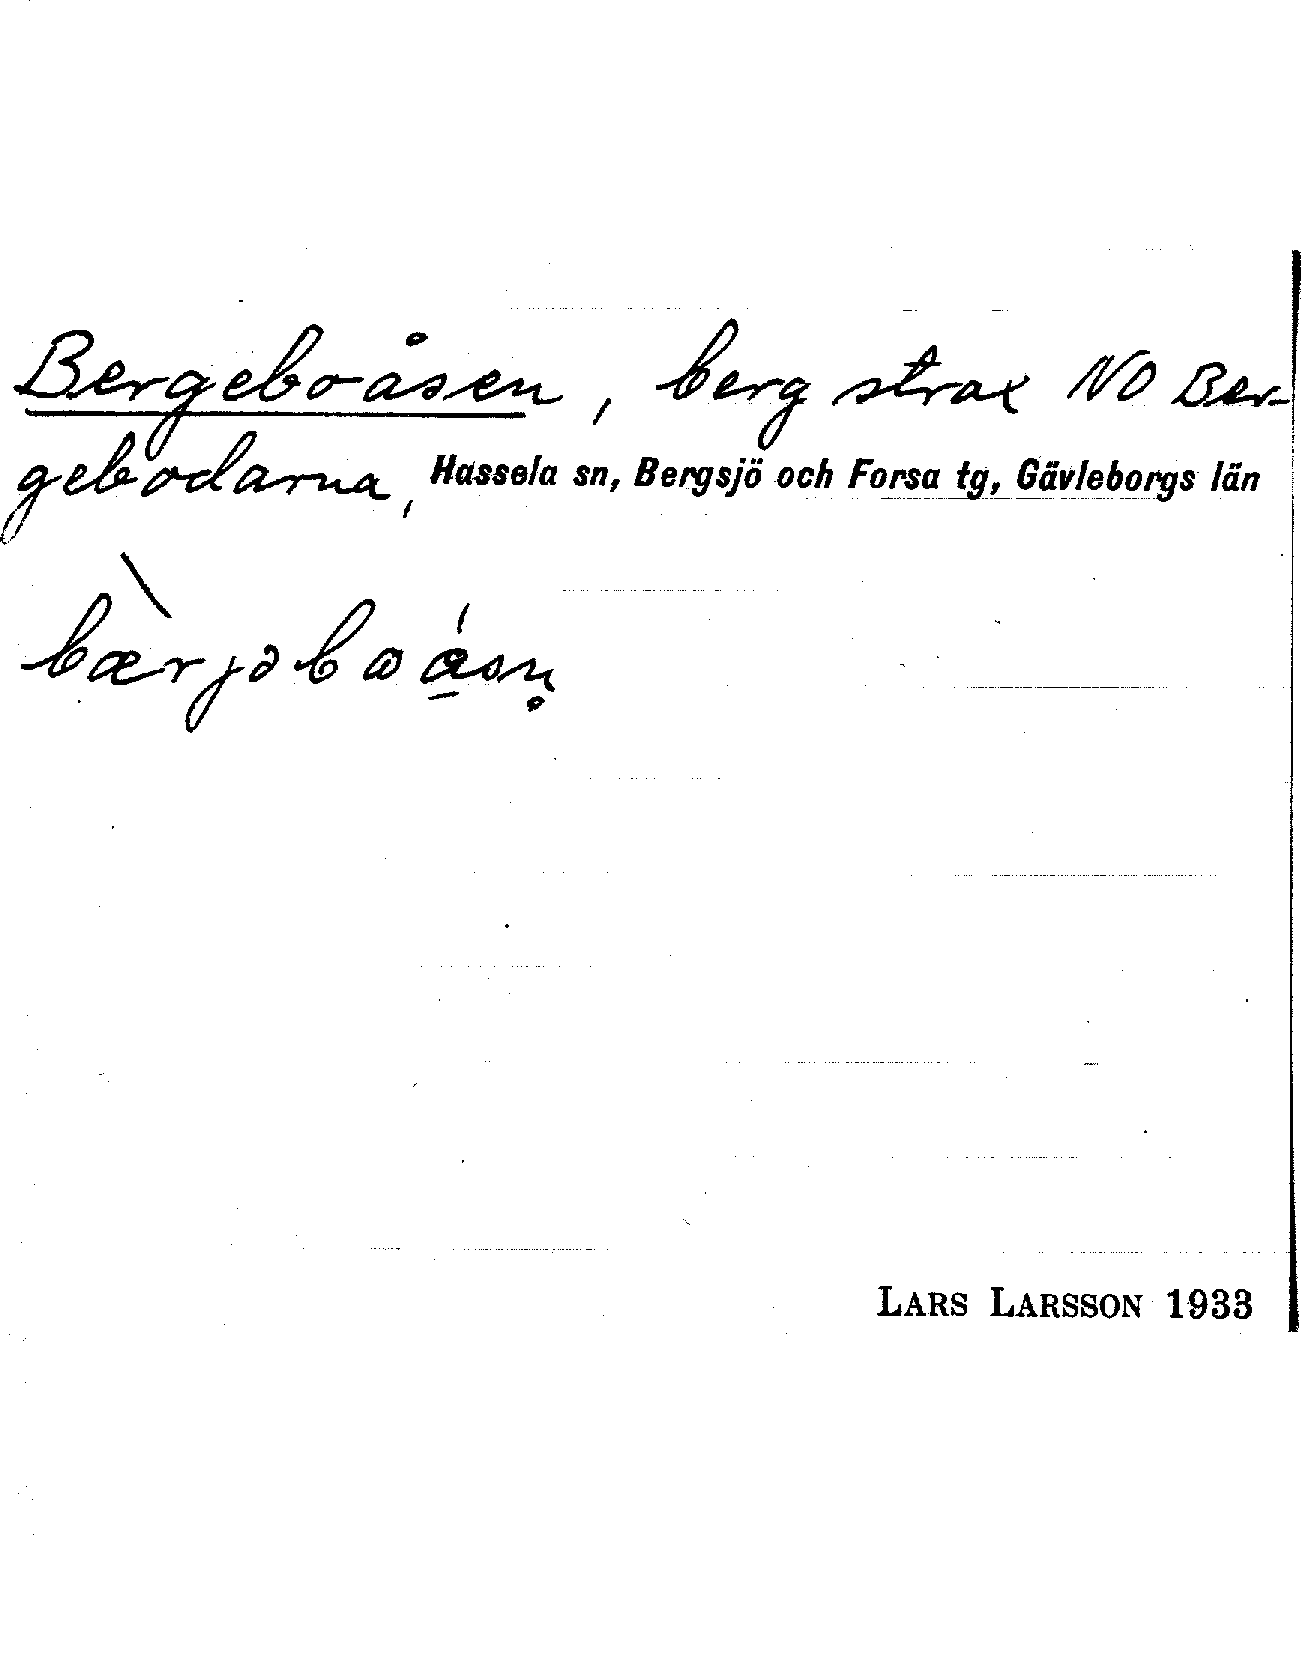 Bergeboåsen, berg strax NO Ber-
gebodarna, Hassela sn, Bergsjö och Forsa tg, Gävleborgs län
bæ̀rjəbωåsn̥
LARS LARSSON 1933